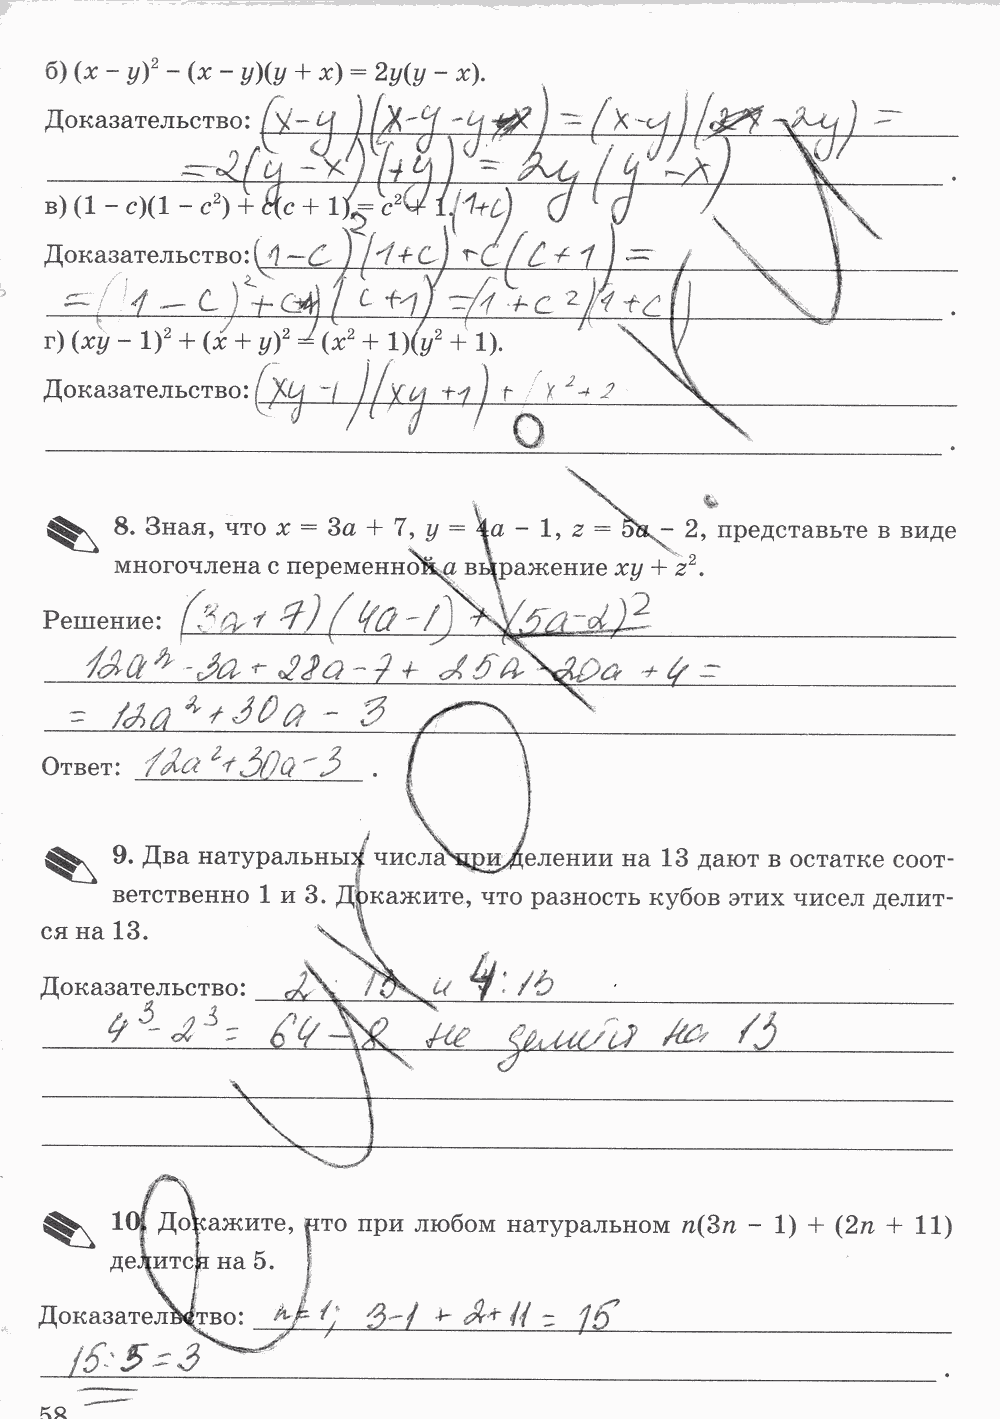 б) (x − y)² − (x − y)(y + x) = 2y(y − x).
Доказательство: (x−y)(x−y−y−x) = (x−y)(−2y) =
= 2(y−x)(+y) = 2y(y−x) .
в) (1 − c)(1 − c²) + c(c + 1) = c² + 1. (1+c)
Доказательство: (1−c)²(1+c) + c(c+1) =
= (1−c)²+c (c+1) = (1+c²)(1+c) .
г) (xy − 1)² + (x + y)² = (x² + 1)(y² + 1).
Доказательство: (xy−1)(xy+1) + (x²+2
.
8. Зная, что x = 3a + 7, y = 4a − 1, z = 5a − 2, представьте в виде
многочлена с переменной a выражение xy + z².
Решение: (3a+7)(4a−1) + (5a−2)²
12a²−3a+28a−7+ 25a−20a+4 =
= 12a²+30a−3
Ответ: 12a²+30a−3 .
9. Два натуральных числа при делении на 13 дают в остатке соот-
ветственно 1 и 3. Докажите, что разность кубов этих чисел делит-
ся на 13.
Доказательство: 2 : 13 и 4 : 13
4³−2³= 64−8 не делится на 13
10. Докажите, что при любом натуральном n(3n − 1) + (2n + 11)
делится на 5.
Доказательство: n=1; 3−1+2+11=15
15:5=3 .
58